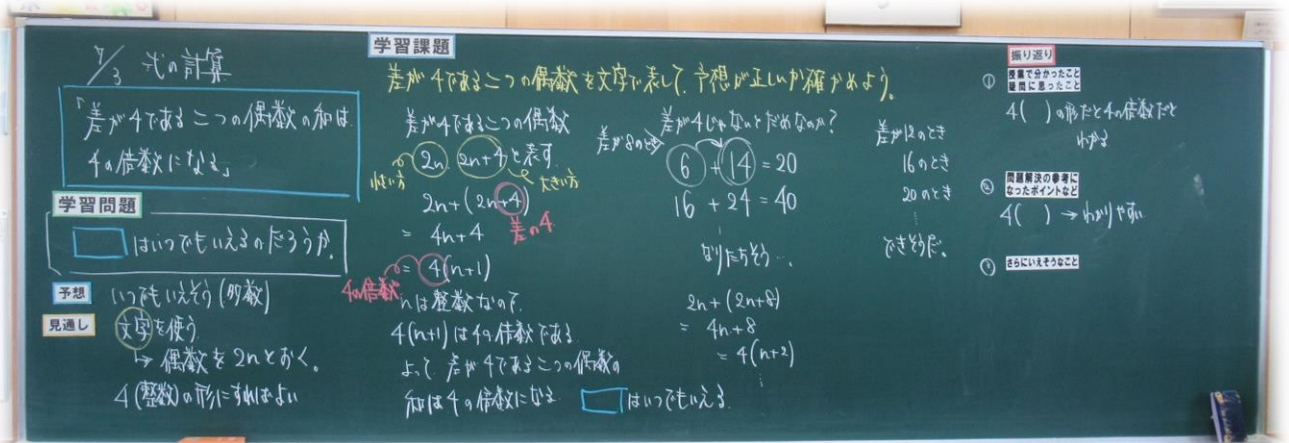 7/3 式の計算
「差が4である二つの偶数の和は
4の倍数になる」
学習問題
□はいつでもいえるのだろうか。
予想 いつでもいえそう(多数)
見通し 文字を使う
↳ 偶数を2nとおく。
4(整数)の形にすればよい
学習課題
差が4である二つの偶数を文字で表して、予想が正しいか確かめよう。
差が4である二つの偶数
2n, 2n+4と表す
小さい方 大きい方
2n+(2n+4)
差の4
= 4n+4
= 4(n+1)
4の倍数
nは整数なので、
4(n+1)は4の倍数である
よって、差が4である二つの偶数の
和は4の倍数になる □はいつでもいえる。
差が4じゃないとだめなのか?
差が8のとき
6 + 14 = 20
16 + 24 = 40
なりたちそう…
2n+(2n+8)
= 4n+8
= 4(n+2)
差が12のとき
16のとき
20のとき
できそうだ。
振り返り
① 授業で分かったこと
疑問に思ったこと
4( )の形だと4の倍数だと
わかる
② 問題解決の参考に
なったポイントなど
4( )→わかりやすい
③ さらにいえそうなこと